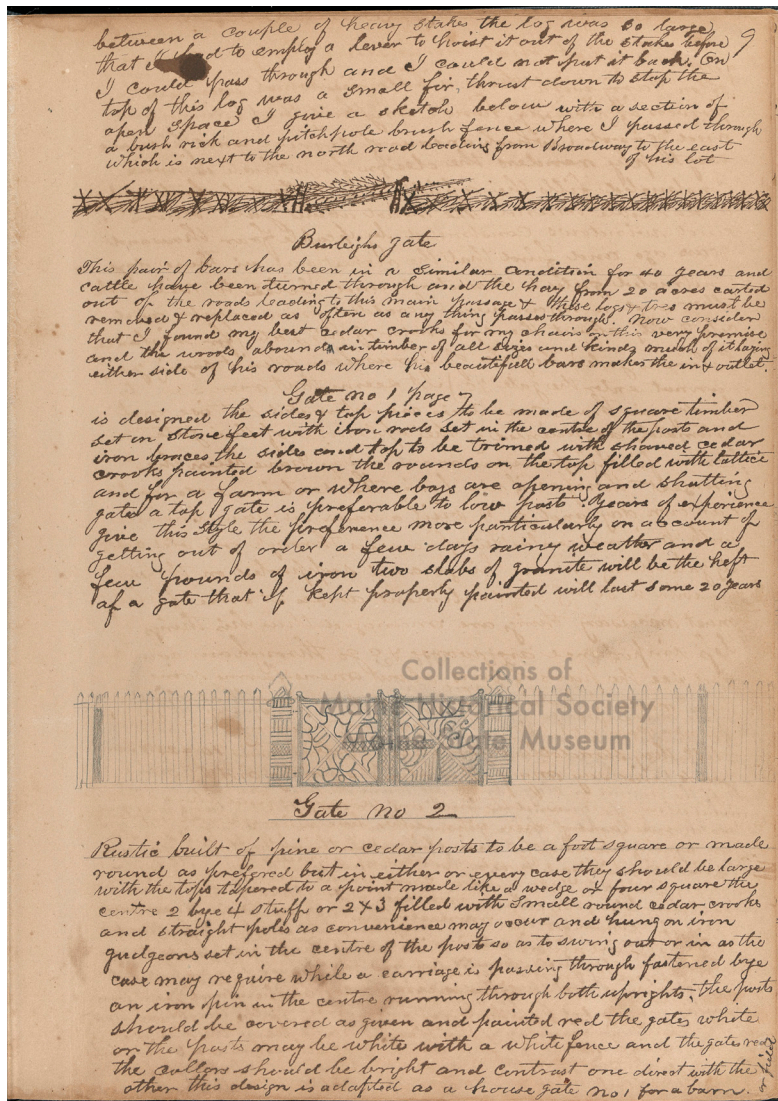 between a couple of heavy stakes the log was so large 9
that I had to employ a lever to hoist it out of the stakes before
I could pass through and I could not put it back. On
top of this log was a small fir, thrust down to stop the
open space I give a sketch below with a section of
a bush rick and pitchpole brush fence where I passed through
which is next to the north road leading from Broadway to the east
of his lot
Burleighs gate
This pair of bars has been in a similar condition for 40 years and
cattle have been turned through and the hay from 20 acres carted
out of the roads leading to this main passage & these logs & tres must be
removed & replaced as often as any thing passes through. Now consider
that I found my best cedar crooks for my chairs on this very premise
and the woods abounds in timber of all sizes and kinds much of it laying
either side of his roads where his beautifull bars makes the in & outlet.
Gate no 1 page 7
is designed the sides & top pieces to be made of square timber
set on stone feet with iron rods set in the centre of the posts and
iron braces the sides and top to be trimed with shaved cedar
crooks painted brown the rounds on the top filled with lattice
and for a farm or where boys are opening and shutting
gate a top gate is preferable to low posts. Years of experience
give this style the preference more particularly on account of
getting out of order a few days rainy weather and a
few pounds of iron two slabs of granite will be the heft
of a gate that if kept properly painted will last some 20 years
Collections of
Maine Historical Society
Maine State Museum
Gate no 2
Rustic built of pine or cedar posts to be a foot square or made
round as prefered but in either or every case they should be large
with the tops tapered to a point made like a wedge or four square the
centre 2 bye 4 stuff or 2 x 3 filled with small round cedar crooks
and straight poles as convenience may occur and hung on iron
gudgeons set in the centre of the post so as to swing out or in as the
case may require while a carriage is passing through fastened bye
an iron pin in the centre running through both uprights. the posts
should be covered as given and painted red the gates white
or the posts may be white with a white fence and the gates red
the collors should be bright and contrast one direct with the
other this design is adapted as a house gate no 1 for a barn. or field